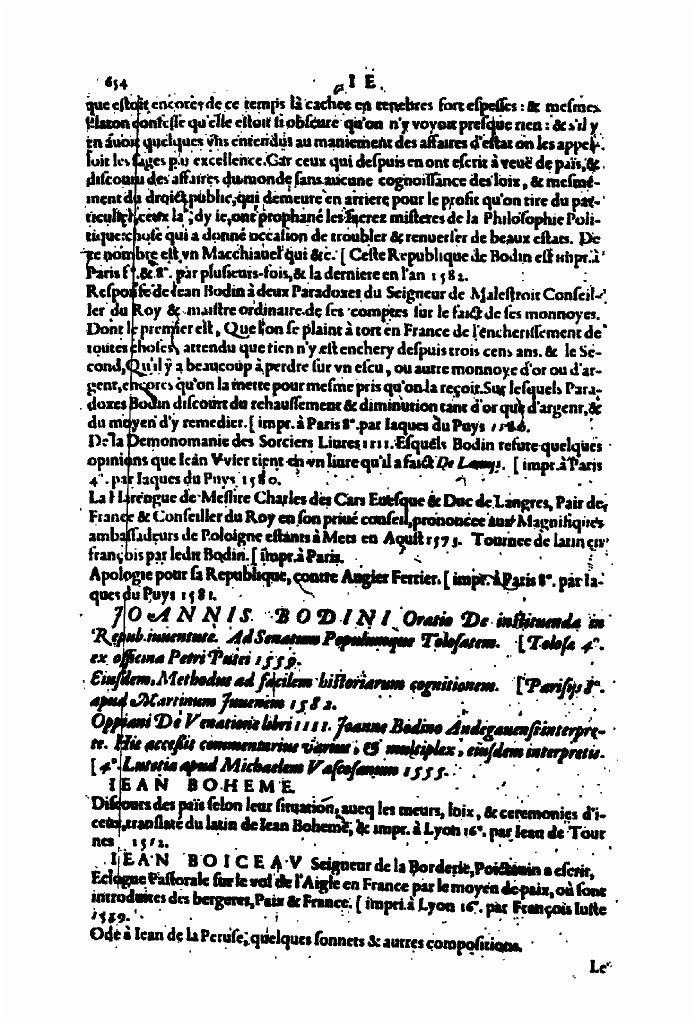 654 I E.
que estoit encores de ce temps là cachee en tenebres fort espesses : & mesmes
Platon confesse qu'elle estoit si obscure qu'on n'y voyoit presque rien : & s'il y
en auoit quelques vns entendus au maniement des affaires d'estat on les appel-
loit les sages par excellence. Car ceux qui despuis en ont escrit à veuë de païs, &
discouru des affaires du monde sans aucune cognoissance des loix, & mesme-
ment du droict public, qui demeure en arriere pour le profit qu'on tire du par-
ticulier, ceux la, dy ie, ont prophané les sacrez misteres de la Philosophie Poli-
tique: chose qui a donné occasion de troubler & renuerser de beaux estats. De
ce nombre est vn Macchiauel qui &c. [ Ceste Republique de Bodin est impr. à
Paris f°. & 8°. par plusieurs-fois, & la derniere en l'an 1582.
Response de Iean Bodin à deux Paradoxes du Seigneur de Malestroit Conseil-
ler du Roy & maistre ordinaire de ses comptes sur le faict de ses monnoyes.
Dont le premier est, Que l'on se plaint à tort en France de l'encherissement de
toutes choses, attendu que rien n'y est enchery despuis trois cens ans. & le Se-
cond, Qu'il y a beaucoup à perdre sur vn escu, ou autre monnoye d'or ou d'ar-
gent, encores qu'on la mette pour mesme pris qu'on la reçoit. Sur lesquels Para-
doxes Bodin discourt du rehaussement & diminution tant d'or que d'argent, &
du moyen d'y remedier. [ impr. à Paris 8°. par Iaques du Puys
De la Demonomanie des Sorciers Liures IIII. Esquels Bodin refute quelques
opinions que Ieàn Vvier tient en vn liure qu'il a faict De Lamys. [ impr. à Paris
4°. par Iaques du Puys 1580.
La Harengue de Messire Charles des Cars Euesque & Duc de Langres, Pair de
France & Conseiller du Roy en son priué conseil, prononcee aux Magnifiques
ambassadeurs de Poloigne estants à Mets en Aoust 1573. Tournee de latin en
françois par ledit Bodin. [ impr. à Paris.
Apologie pour sa Republique, contre Augier Ferrier. [ impr. à Paris 8°. par Ia-
ques du Puys 1581.
JOANNIS BODINI Oratio De instituenda in
Repub. iuuentute. Ad Senatum Populumque Tolosatem. [ Tolosa 4°.
ex officina Petri Putei 1559.
Eiusdem Methodus ad facilem historiarum cognitionem. [ Parisijs 8°.
apud Martinum Juuenem 1582.
Oppiani De Venatione libri IIII. Joanne Bodino Andegauensi interpre-
te. His accessit commentarius varius, & multiplex, eiusdem interpretis.
[ 4°. Lutetia apud Michaelem Vascosanum 1555.
IEAN BOHEME.
Discours des païs selon leur situation, aueq les mœurs, loix, & ceremonies d'i-
ceux, translaté du latin de Iean Boheme, & impr. à Lyon 16°. par Iean de Tour
nes 1552.
IEAN BOICEAV Seigneur de la Borderie, Poicteuin a escrit,
Eclogue Pastorale sur le vol de l'Aigle en France par le moyen de paix, où sont
introduites des bergeres, Paix & France. [ impr. à Lyon 16°. par François Iuste
1539.
Ode à Iean de la Peruse, quelques sonnets & autres compositions.
Le